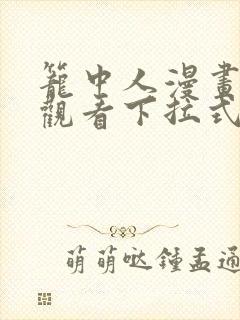 籠中人漫畫
觀看下拉式
萌萌哒鍾孟通